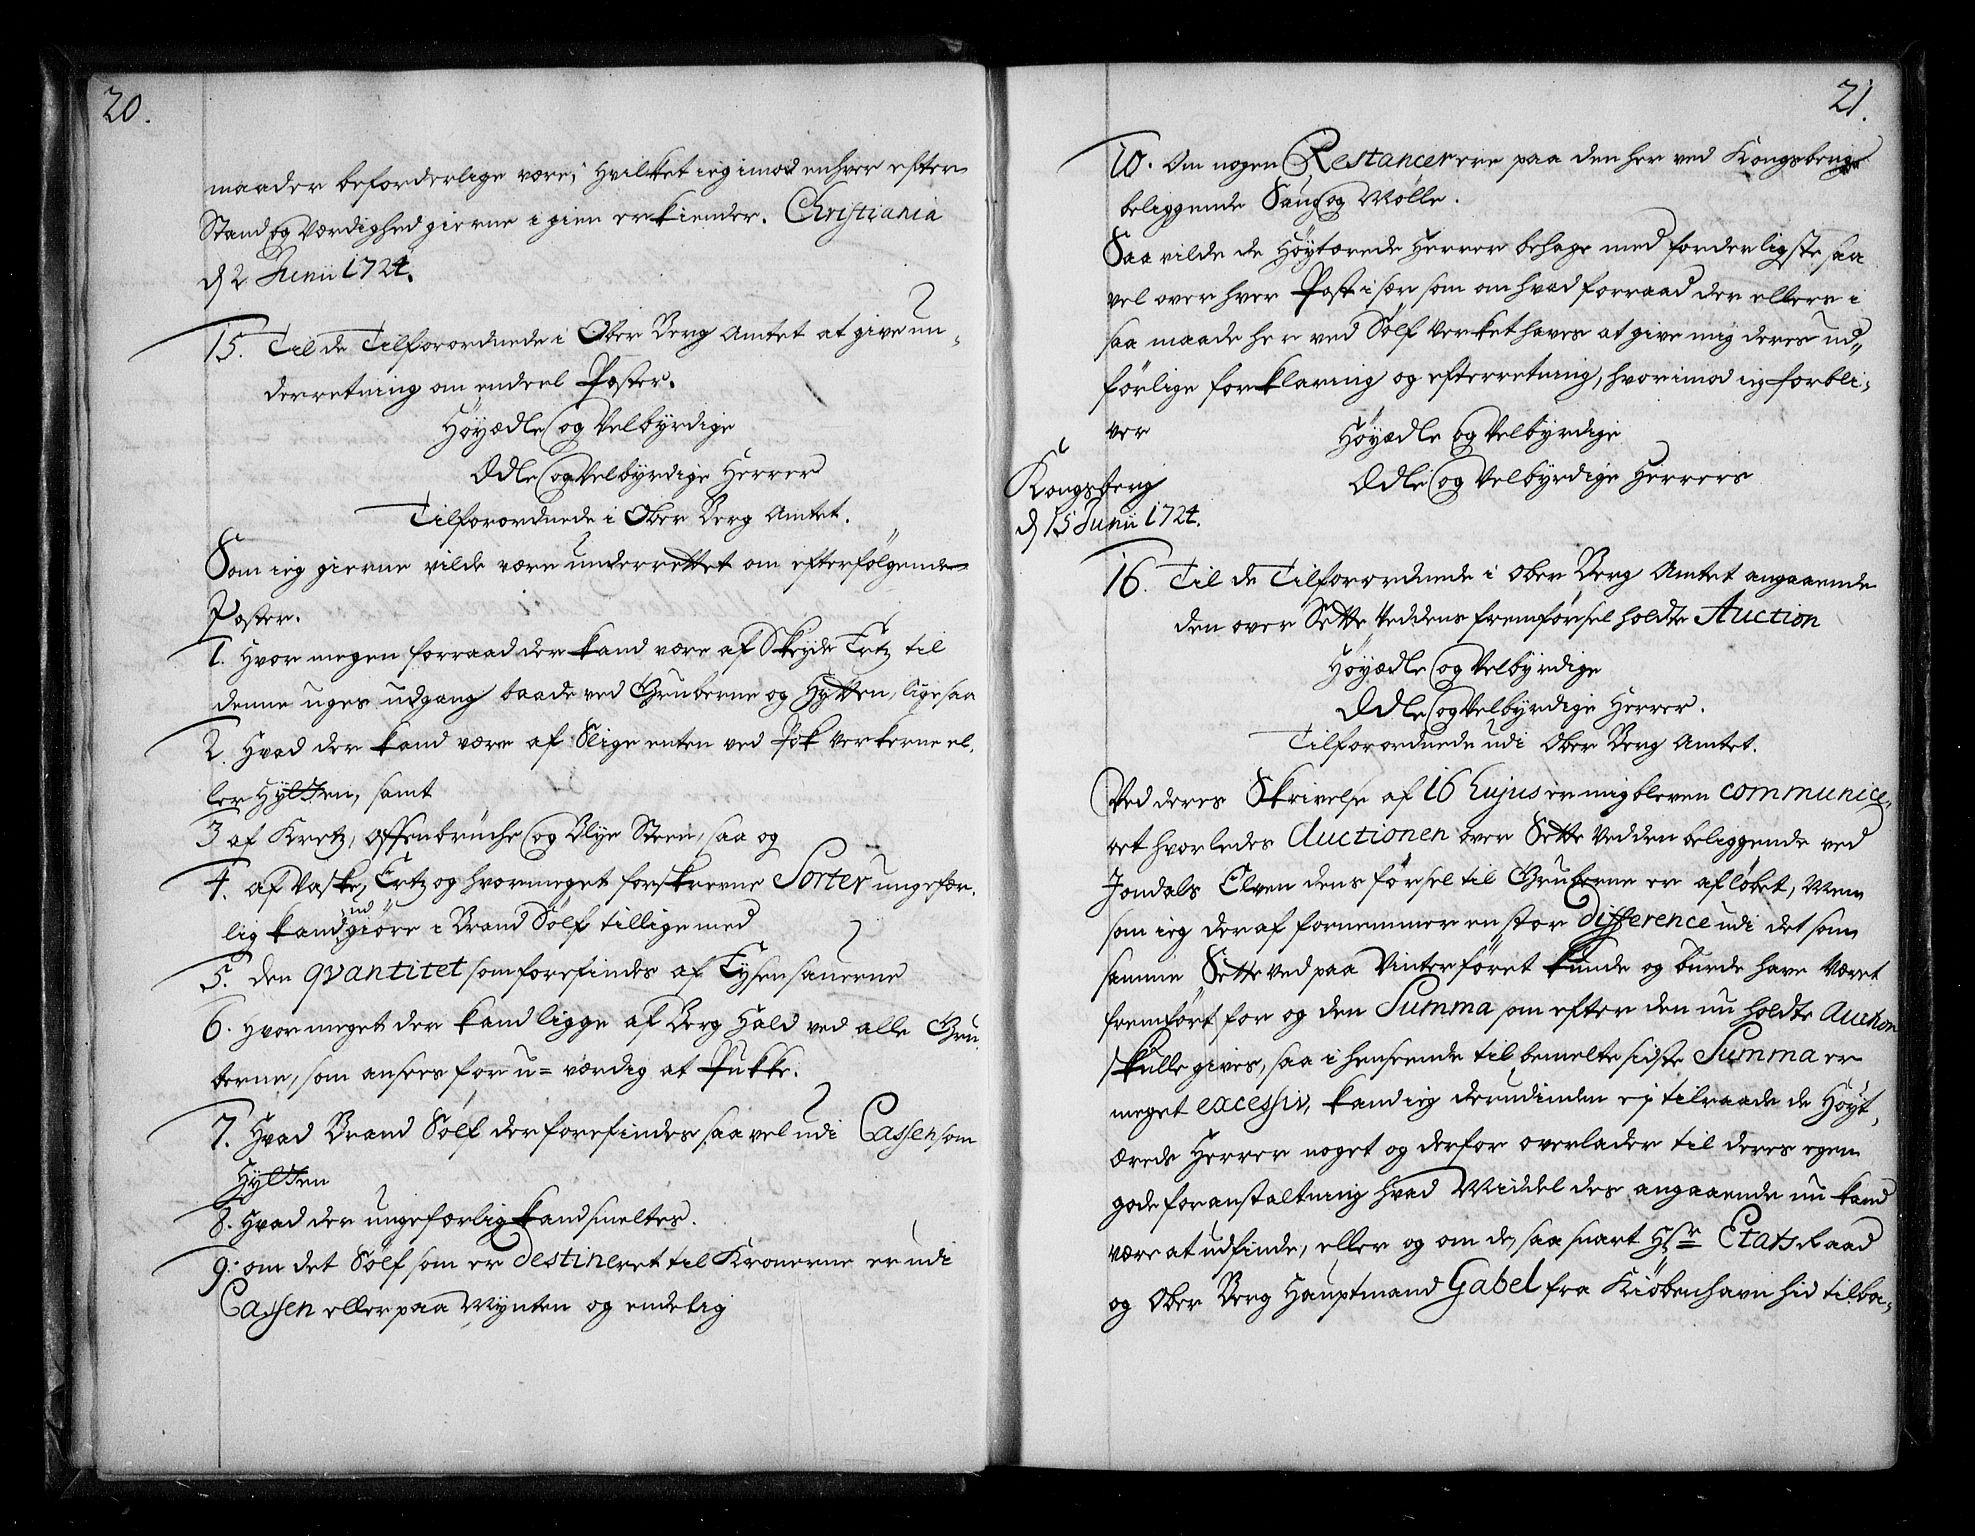 20.
maader beforderlige være; hvilket ieg imod enhver efter
Stand og Værdighed gierne igien erkiender. Christiania
d 2 Junii 1724.
15. Til de Tilforordnede i Ober Berg Amtet at give un-
derretning om endeel Poster.
Höyædle og Velbÿrdige
Ædle og Velbÿrdige Herrer
Tilforordnede i Ober Berg Amtet.
Som ieg gierne vilde være underrettet om efterfölgende
Poster.
1. Hvor megen forraad der kand være af Skeyde Ertz til
denne uges udgang baade ved Gruberne og Hÿtten, ligesaa
2. Hvad der kand være af Slige enten ved Pok Verkerne el-
ler Hÿtten, samt
3 af Kretz, offenbrüche og Blÿe Steen, saa og
4. af Vaske Ertz og hvormeget forskrevne Sorter ungefær-
lig kand udgiöre i Brand Sölf tillige med
5. den qvantitet som forefindes af Eÿsensauerne
6. Hvor meget der kand ligge af Berg Hald ved alle Gru-
berne, som ansees for u= værdig at Pukke.
7. Hvad Brand Sölf der forefindes saa vel udi Cassen som
Hÿtten
8. Hvad der ungefærlig kand smeltes.
9. om det Sölf som er destineret til Kronerne er udi
Cassen eller paa Mÿnten og endelig
21.
10. Om nogen Restancer ere paa den her ved Kongsberg
beliggende Saug og Mölle.
Saa vilde de Höÿtærede Herrer behage med forderligste saa
vel over hver Post i sær som om hvad forraad der ellers i
saa maade her ved Sölf Verket haves at give mig deres ud-
förlige forklaring og efterretning, hvorimod ieg forbli-
ver
Höyædle og Velbÿrdige
Ædle og Velbÿrdige Herrers
Kongsberg
d 15 Junii 1724.
16. Til de Tilforordnede i Ober Berg Amtet angaaende
den over Sette Veddens fremförsel holdte Auction
Höyædle og Velbÿrdige
Ædle og Velbÿrdige Herrer.
Tilforordnede udi Ober Berg Amtet.
Ved deres Skrivelse af 16 hujus er mig bleven communice-
ret hvorledes Auctionen over Sette Vedden beliggende ved
Jondals Elven dens försel til Gruberne er aflöbet, Men
som ieg deraf fornemmer en stor difference udi det som
samme Sette Ved paa Vinterföret kunde og burde have været
fremfört for og den Summa som efter den nu holdte Auction
skulle gives, saa i henseende til bemelte sidste Summa er
meget excessiv, kand ieg derudinden ej tilraade de Höÿt-
ærede Herrer noget og derfor overlader til deres egen
gode foranstaltning hvad Middel des angaaende nu kand
være at udfinde, eller og om de, saa snart Hr Etats Raad
og Ober Berg Hauptmand Gabel fra Kiöbenhavn hid tilba-